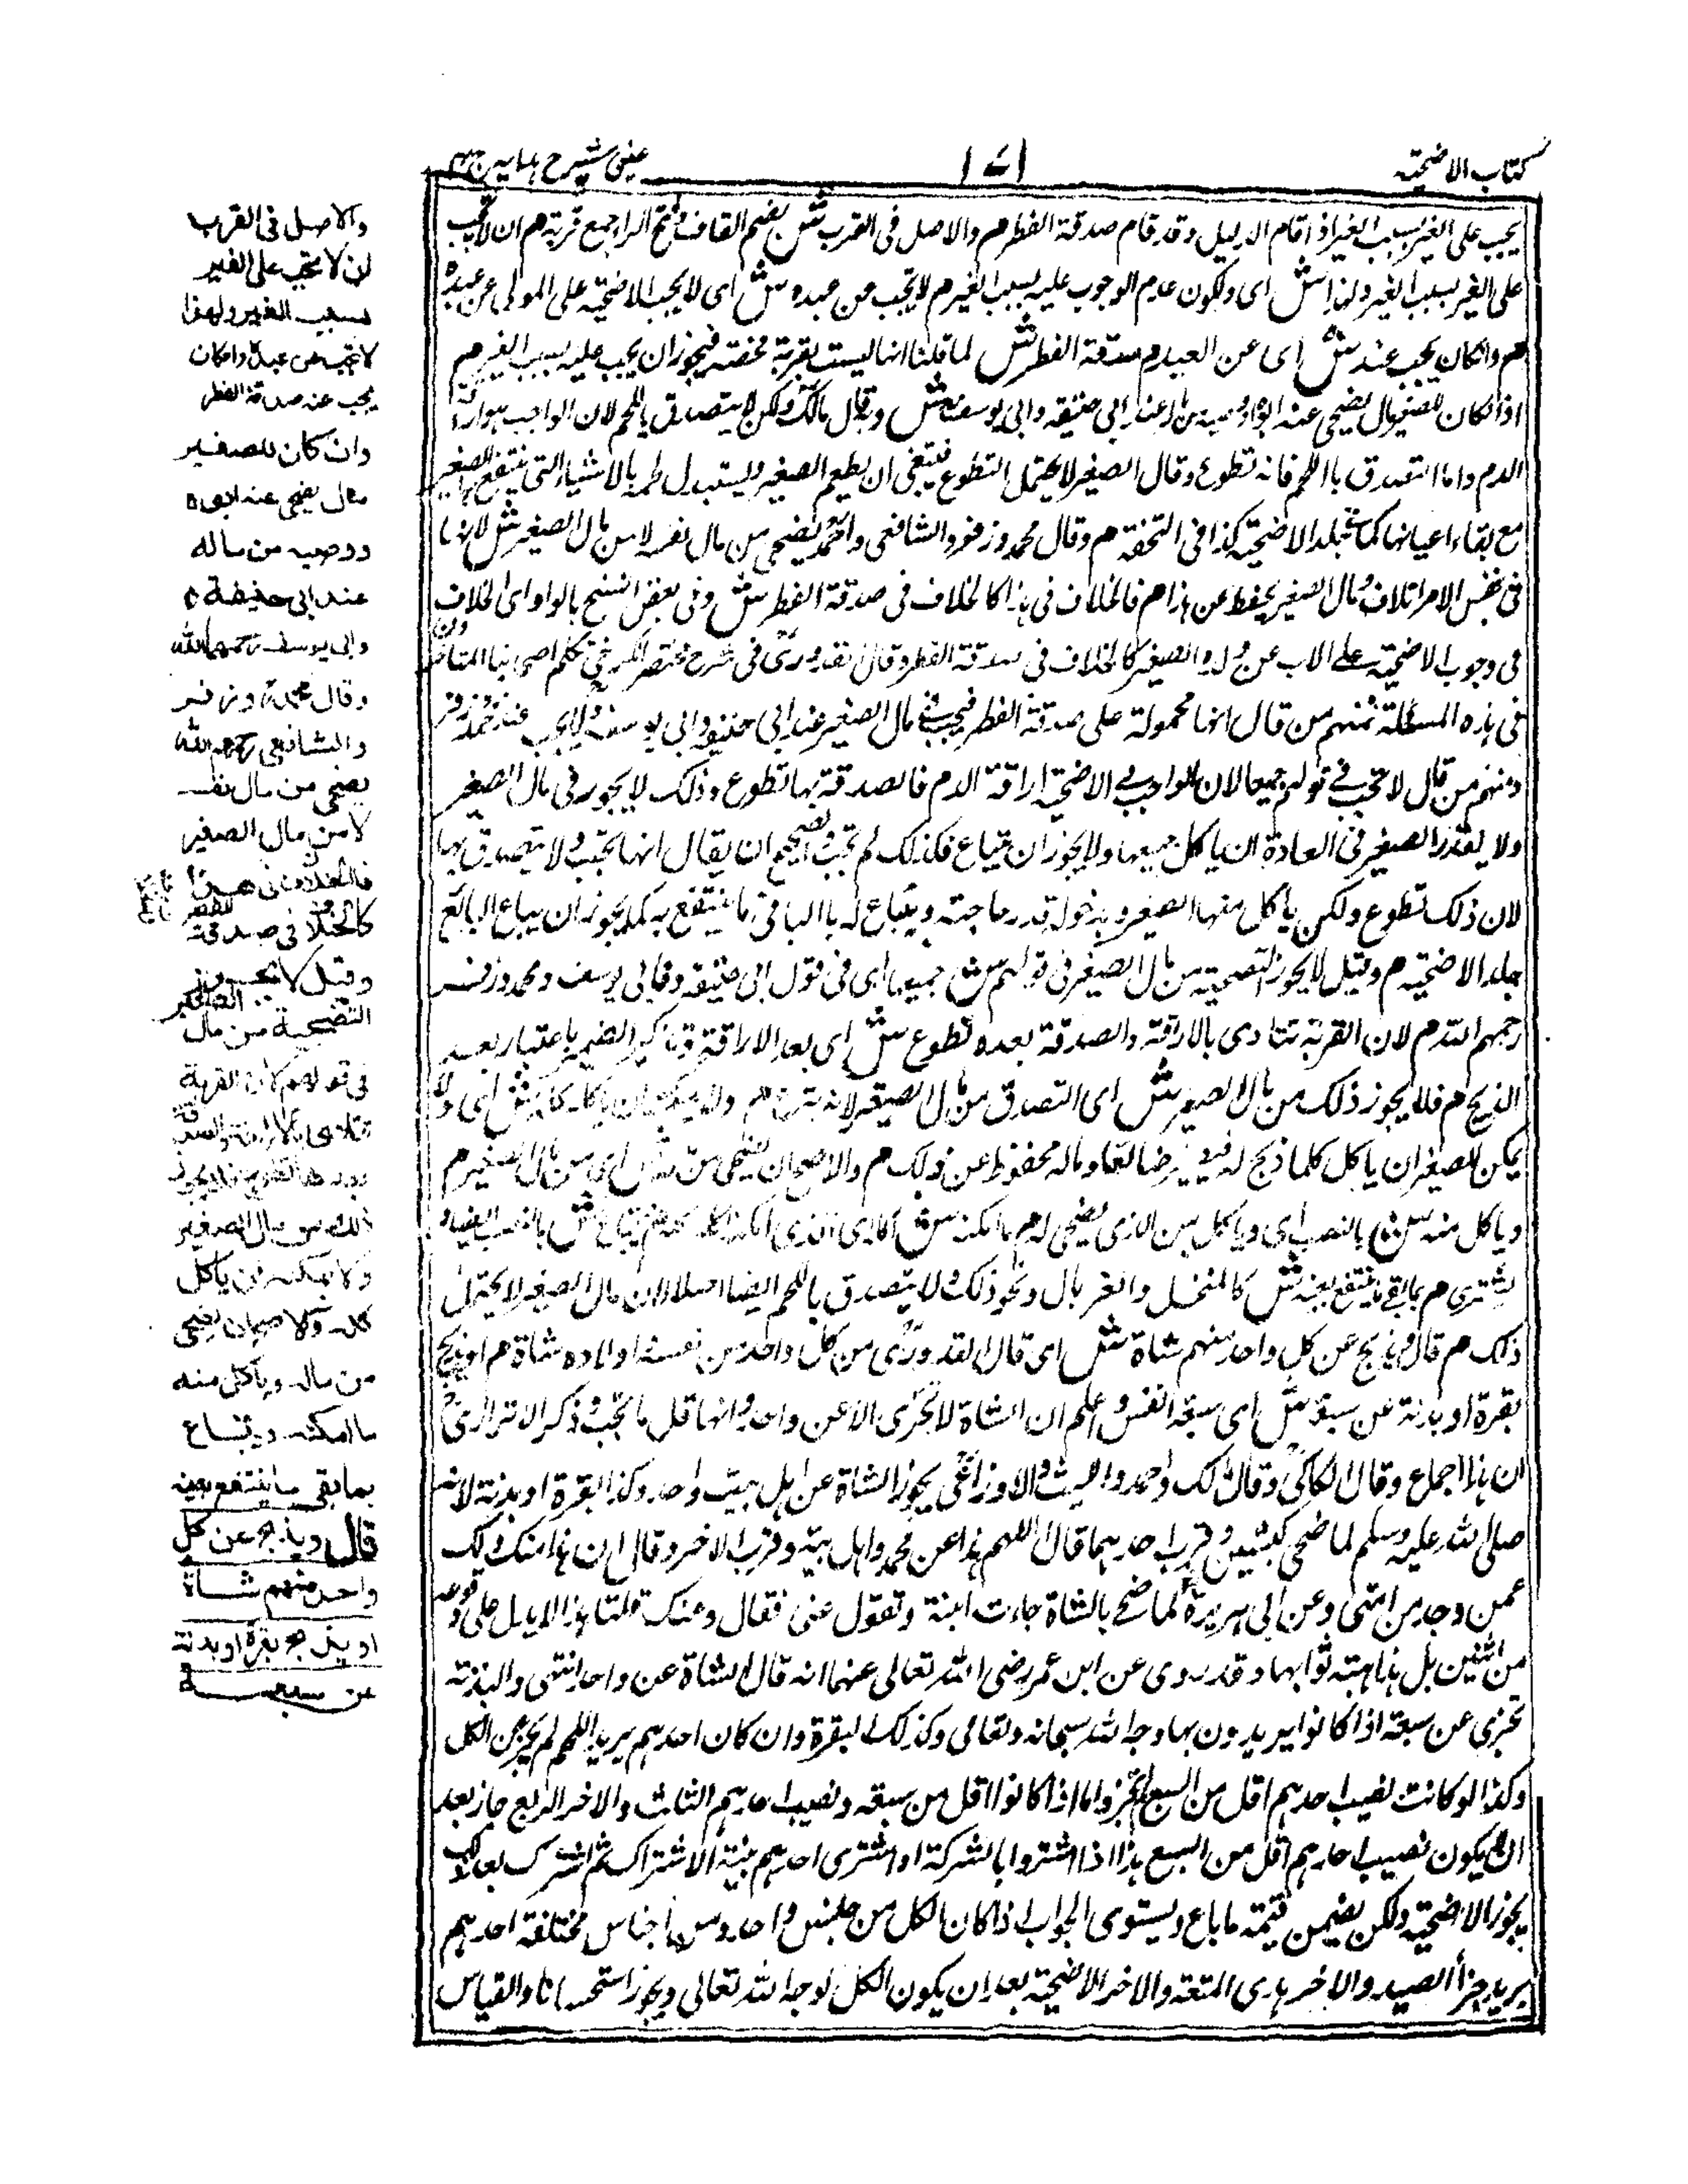 كتاب الاضحية
١٧١
عينى شرح هدايه ج
يجب على الغير بسبب الغير اذا قام الدليل وقد قام صدقة الفطر م والاصل فى القرب ش بضم القاف وفتح الراء جمع قربة م ان لا تجب
على الغير بسبب الغير ولهذا ش اى ولكون عدم الوجوب عليه بسبب الغير م لا تجب عن عبده ش اى لا يجب الاضحية على المولى عن عبده
م وان كان يجب عنه ش اى عن العبد م صدقة الفطر ش لما قلنا انها ليست بقربة محضة فيجوز ان يجب عليه بسبب الغير م
اذا كان للصغير مال يضحى عنه ابوه او وصيه من ماله عند ابى حنيفة وابى يوسف ش وبه قال مالك ولكن لا يتصدق باللحم لان الواجب هو اراقة
الدم واما التصدق باللحم فانه تطوع وقال الصغير لا يحتمل التطوع فينبغى ان يطعم الصغير ويستبدل لحمه بالاشياء التى ينتفع بها الصغير
مع بقاء اعيانها كما فى جلد الاضحية كذا فى التحفة م وقال محمد وزفر والشافعى واحمد يضحى من مال نفسه لا من مال الصغير ش لانها
فى نفس الامر اتلاف ومال الصغير يحفظ عن هذا م فالخلاف فى هذا كالخلاف فى صدقة الفطر ش وفى بعض النسخ بالواو اى الخلاف
فى وجوب الاضحية على الاب عن ولده الصغير كالخلاف فى صدقة الفطر وقال القدورى فى شرح مختصر الكرخى تكلم اصحابنا المتاخرون
فى هذه المسئلة فمنهم من قال انها محمولة على صدقة الفطر فيجب فى مال الصغير عند ابى حنيفة وابى يوسف ولا يجب عند محمد وزفر
ومنهم من قال لا تجب فى قولهم جميعا لان الواجب فى الاضحية اراقة الدم فالصدقة بها تطوع وذلك لا يجوز فى مال الصغير
ولا يقدر الصغير فى العادة ان ياكل جميعها ولا يجوز ان يبتاع فكذلك لم تجب والصحيح ان يقال انها تجب ولا يتصدق بها
لان ذلك تطوع ولكن ياكل منها الصغير ويدخر له قدر حاجته ويبتاع له بالباقى ما ينتفع به كما يجوز ان يباع البالغ
جلد الاضحية م وقيل لا يجوز التضحية من مال الصغير فى قولهم ش جميعا اى فى قول ابى حنيفة وابى يوسف ومحمد وزفر
رحمهم الله م لان القربة تتادى بالاراقة والصدقة بعده تطوع ش اى بعد الاراقة وتذكير الضمير باعتبار بعد
الذبح م فلا يجوز ذلك من مال الصغير ش اى التصدق من مال الصغير لانه تبرع م ولا يمكنه ان ياكل كله ش اى ولا
يمكن للصغير ان ياكل كلما ذبح له وماله محفوظ عن ذلك م والاصح ان يضحى من ماله ش اى من مال الصغير م
وياكل منه ش بالنصب اى وياكل من الذى يضحى له م ما امكنه ش اى الذى امكنه اكله م ثم يبتاع ش بالنصب ايضا
يشترى م بما بقى ما ينتفع بعينه ش كالمنخل والغربال ونحو ذلك ولا يتصدق باللحم ايضا اصلا لان مال الصغير لا يحتمل
ذلك م قال ويذبح عن كل واحد منهم شاة ش اى قال القدورى من كل واحد من نفسه اولاده شاة م او يذبح
بقرة او بدنة عن سبعة ش اى سبعة انفس واعلم ان الشاة لا تجزى الا عن واحد وانها اقل ما تجب وذكر الاترازى
ان هذا اجماع وقال الكاكى وقال مالك واحمد والليث والاوزاعى يجوز الشاة عن اهل بيت واحد وكذا البقرة او بدنة لانه
صلى الله عليه وسلم لما ضحى كبشين وقرب احدهما قال اللهم هذا عن محمد واهل بيته وقرب الاخر وقال ان هذا منك ولك
عمن وحد من امتى وعن ابى هريرة لما ضحى بالشاة جاءت ابنة وتقول عنى فقال وعنك قلنا هذا لا يدل على وقوعه
من اثنين بل هذا هبة ثوابها وقد روى عن ابن عمر رضى الله تعالى عنهما انه قال الشاة عن واحد انتهى والبدنة
تجزى عن سبعة اذا كانوا يريدون بها وجه الله سبحانه وتعالى وكذلك البقرة وان كان احدهم يريد اللحم لم يجز عن الكل
وكذا لو كانت نصيب احدهم اقل من السبع لم يجز واما اذا كانوا اقل من سبعة ونصيب احدهم الثلث والاخر الربع جاز بعد
ان لا يكون نصيب احدهم اقل من السبع هذا اذا اشتروا بالشركة او اشترى احدهم بنية الاشتراك ثم اشترك بعد ذلك
يجوز الاضحية ولكن يضمن قيمة ما باع ويستوى الجواب اذا كان الكل من جنس واحد ومن اجناس مختلفة احدهم
يريد جزأ الصيد والاخر هدى المتعة والاخر الاضحية بعد ان يكون الكل لوجه الله تعالى ويجوز استحسانا والقياس
والاصل فى القرب
ان لا تجب على الغير
بسبب الغير ولهذا
لا تجب عن عبده وان كان
يجب عنه صدقة الفطر
وان كان للصغير
مال يضحى عنه ابوه
ووصيه من ماله
عند ابى حنيفة
وابى يوسف رحمهما الله
وقال محمد وزفر
والشافعى رحمهم الله
يضحى من مال نفسه
لا من مال الصغير
فالخلاف فى هذا
كالخلاف فى صدقة الفطر
وقيل لا تجوز
التضحية من مال الصغير
فى قولهم لان القربة
تتادى بالاراقة والصدقة
بعدها تطوع فلا يجوز
ذلك من مال الصغير
ولا يمكنه ان ياكل
كله والاصح ان يضحى
من ماله وياكل منه
ما امكنه ويبتاع
بما بقى ما ينتفع بعينه
قال ويذبح عن كل
واحد منهم شاة
او يذبح بقرة او بدنة
عن سبعة